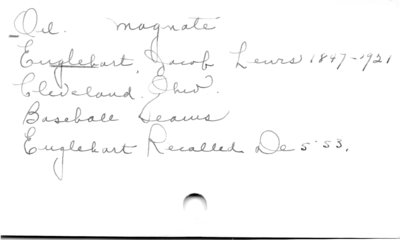 Oil. magnate
Englehart, Jacob Lewis 1847-1921
Cleveland, Ohio.
Baseball Teams
Englehart Recalled De 5 '53.